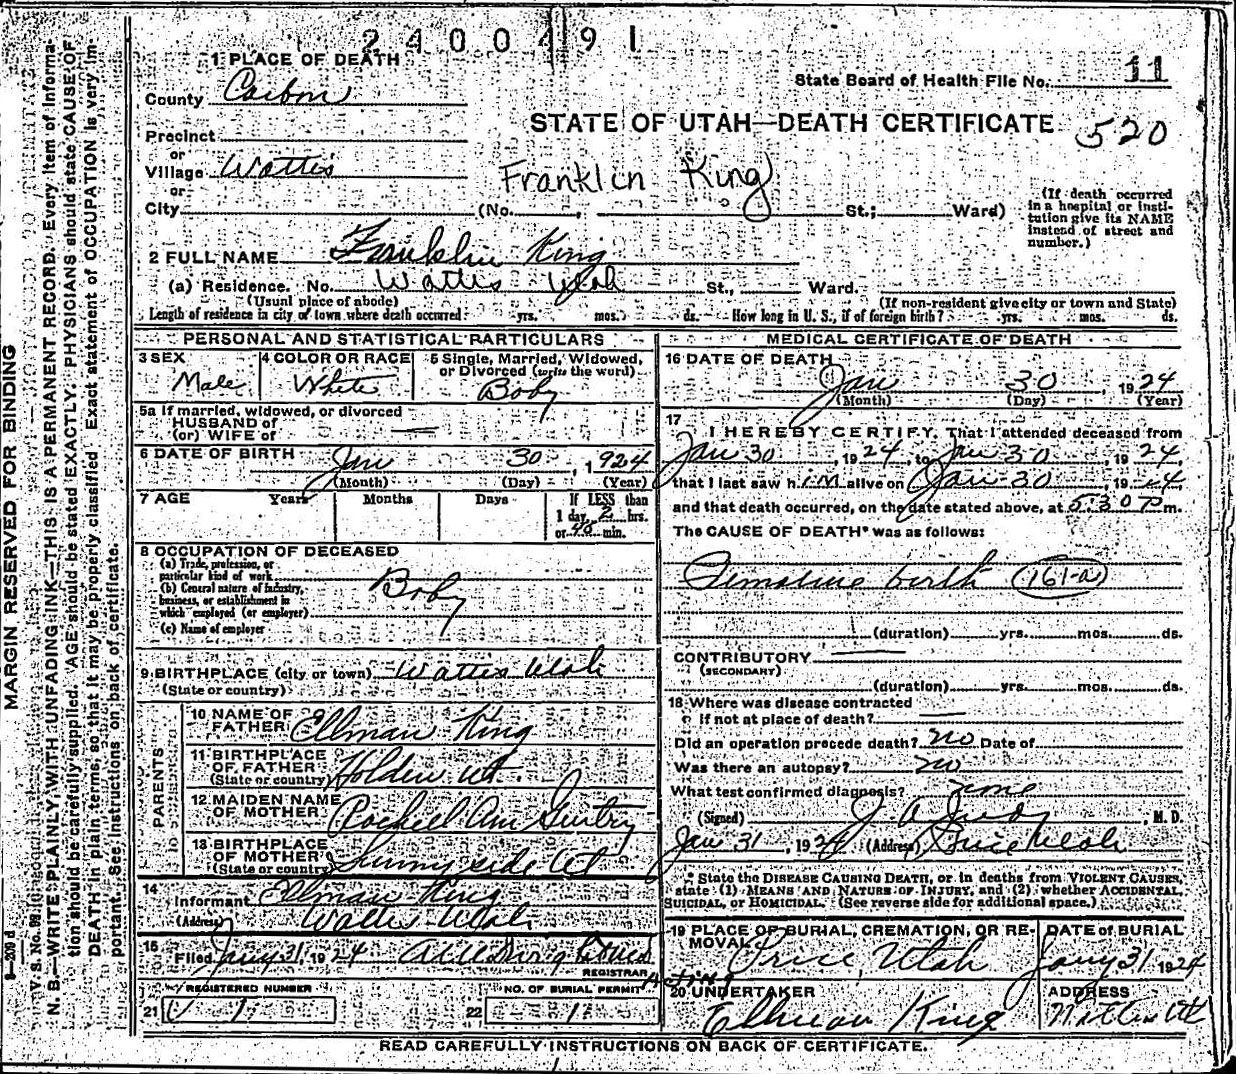 2400491
1 PLACE OF DEATH
State Board of Health File No. 11
County Carbon
STATE OF UTAH—DEATH CERTIFICATE 520
Precinct
or
Village Wattis
Franklin King
or
City (No. , St.; Ward)
(If death occurred in a hospital or institution give its NAME instead of street and number.)
2 FULL NAME Franklin King
(a) Residence. No. Wattis Utah St., Ward.
(Usual place of abode) (If non-resident give city or town and State)
Length of residence in city or town where death occurred yrs. mos. ds. How long in U. S., if of foreign birth? yrs. mos. ds.
PERSONAL AND STATISTICAL PARTICULARS
3 SEX Male
4 COLOR OR RACE White
5 Single, Married, Widowed, or Divorced (write the word) Baby
5a If married, widowed, or divorced
HUSBAND of
(or) WIFE of
6 DATE OF BIRTH Jan 30, 1924
(Month) (Day) (Year)
7 AGE Years Months Days If LESS than
1 day 2 hrs.
or min.
8 OCCUPATION OF DECEASED
(a) Trade, profession, or
particular kind of work
(b) General nature of industry,
business, or establishment in
which employed (or employer)
Baby
(c) Name of employer
9 BIRTHPLACE (city or town) Wattis Utah
(State or country)
PARENTS
10 NAME OF FATHER Ellman King
11 BIRTHPLACE OF FATHER (State or country) Holden Ut.
12 MAIDEN NAME OF MOTHER Rachell Ann Gentry
13 BIRTHPLACE OF MOTHER (State or country) Sunnyside Ut
14 Informant Ellman King
(Address) Wattis Utah
15 Filed Jany 31, 1924
REGISTRAR
REGISTERED NUMBER
21 1
NO. OF BURIAL PERMIT
22 1
MEDICAL CERTIFICATE OF DEATH
16 DATE OF DEATH
Jan 30, 1924
(Month) (Day) (Year)
17 I HEREBY CERTIFY, That I attended deceased from
Jan 30, 1924, to Jan 30, 1924,
that I last saw him alive on Jan 30, 1924
and that death occurred, on the date stated above, at 5:30 P m.
The CAUSE OF DEATH* was as follows:
Premature birth 161-a
(duration) yrs. mos. ds.
CONTRIBUTORY
(SECONDARY)
(duration) yrs. mos. ds.
18 Where was disease contracted
if not at place of death?
Did an operation precede death? no Date of
Was there an autopsy? no
What test confirmed diagnosis? none
(Signed) J. A. , M. D.
Jan 31, 1924 (Address) Price Utah
* State the DISEASE CAUSING DEATH, or in deaths from VIOLENT CAUSES,
state (1) MEANS AND NATURE OF INJURY, and (2) whether ACCIDENTAL,
SUICIDAL, or HOMICIDAL. (See reverse side for additional space.)
19 PLACE OF BURIAL, CREMATION, OR REMOVAL Price, Utah
DATE of BURIAL Jany 31 1924
20 UNDERTAKER Ellman King
ADDRESS Wattis Ut
READ CAREFULLY INSTRUCTIONS ON BACK OF CERTIFICATE.
MARGIN RESERVED FOR BINDING
V. S. No. 99
N. B.—WRITE PLAINLY, WITH UNFADING INK—THIS IS A PERMANENT RECORD. Every item of informa-
tion should be carefully supplied. AGE should be stated EXACTLY. PHYSICIANS should state CAUSE OF
DEATH in plain terms, so that it may be properly classified. Exact statement of OCCUPATION is very im-
portant. See instructions on back of certificate.